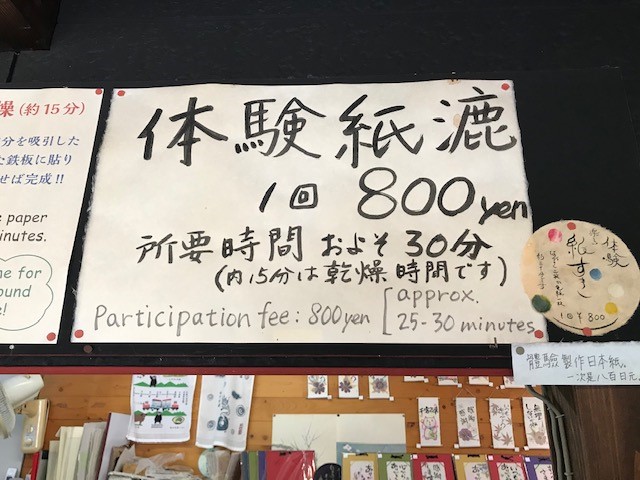 燥(約15分)
分を吸引した
な鉄板に貼り
せば完成!!
e paper
inutes.
ne for
ound
!
体験紙漉
1回 800yen
所要時間 およそ30分
(内15分は乾燥時間です)
Participation fee: 800yen [approx.
25-30 minutes
体験
紙すき
1回¥800
體驗製作日本紙。
一次是八百日元。